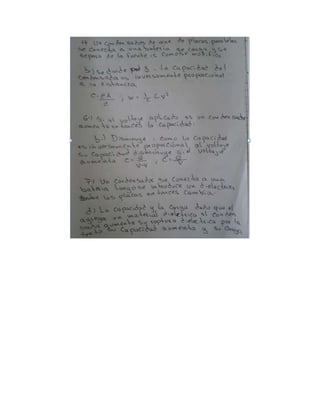 4. Un condensador de aire de placas paralelas
se conecta a una batería se carga y se
separa de la fuente ¿como se modifica
b) se divide por 3. La capacidad del
condensador es inversamente proporcional
a su distancia
C = εA / d ; w = 1/2 C V²
6.) Si el voltaje aplicado es un condensador
aumenta entonces la capacidad:
b.) Disminuye, como la capacidad
es inversamente proporcional al voltaje
su capacidad disminuye si el voltaje
aumenta C=
7.) Un condensador se conecta a una
batería luego se introduce un dielectrico
entre las placas entonces cambia.
d.) La capacidad y la carga dado que el
agregar un material dielectrico al conden
sador aumenta su ruptura dielectrica por lo
tanto su capacidad aumenta y su carga